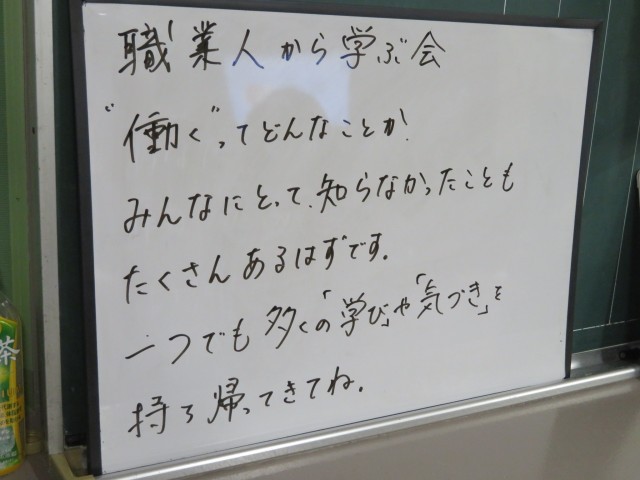 職業人から学ぶ会
"働く"ってどんなことか.
みんなにとって、知らなかったことも
たくさんあるはずです.
一つでも多くの「学び」や「気づき」を
持ち帰ってきてね.
茶